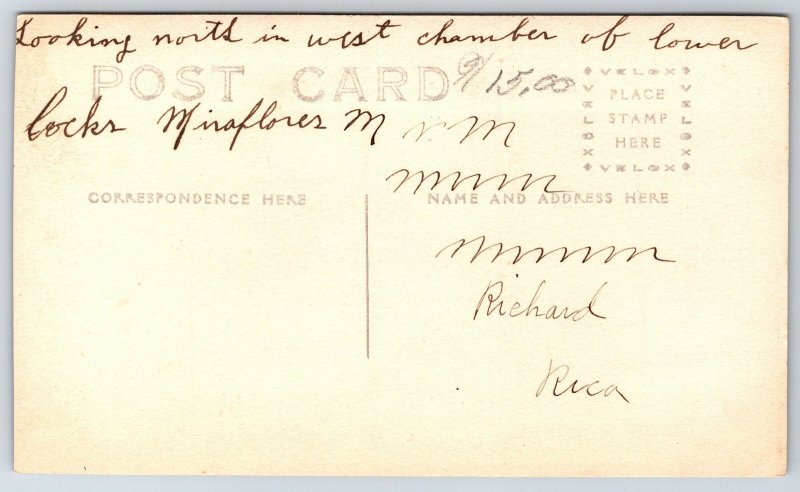 Looking north in west chamber of lower
POST CARD 15.00
locks Miraflores M r M
VELOX
VELOX
VELOX
VELOX
PLACE
STAMP
HERE
mmm
CORRESPONDENCE HERE
NAME AND ADDRESS HERE
mmmmm
Richard
Rica